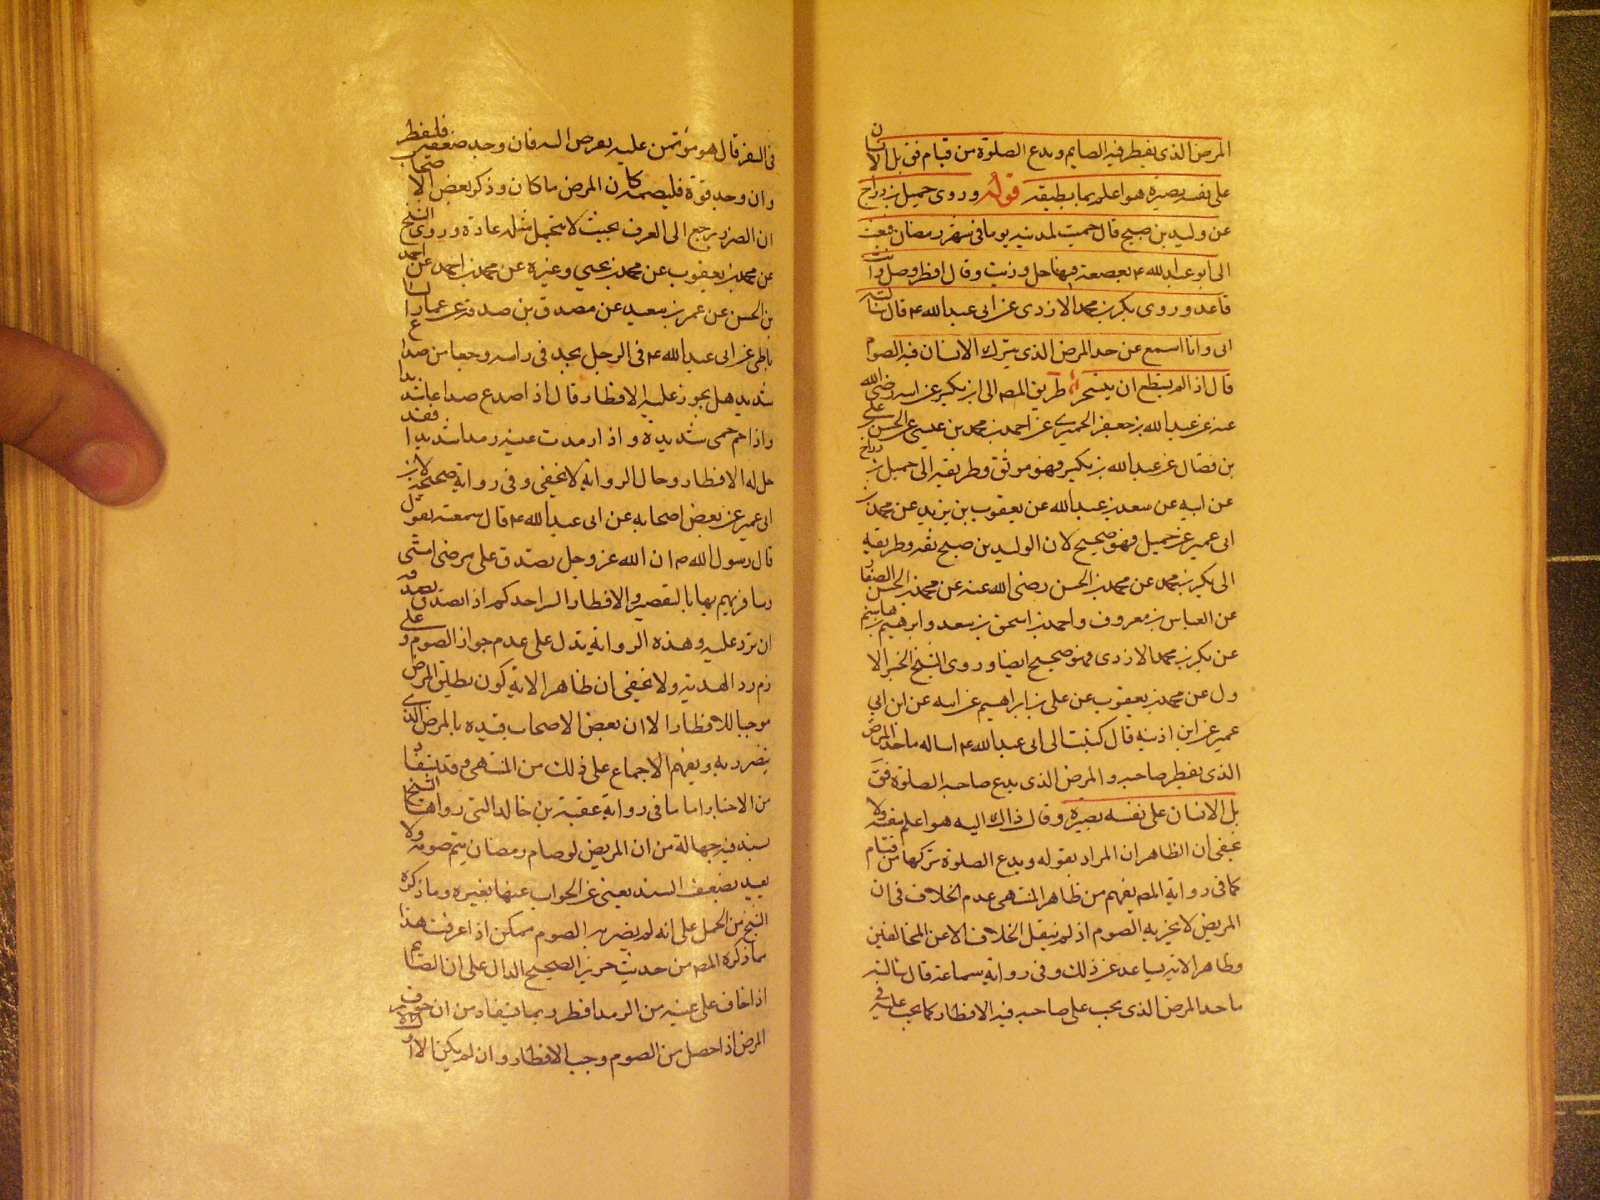 المرض الذى يفطر فيه الصايم ويدع الصلوة من قيام فق بل الانسان
على نفسه بصيرة هو اعلم بما يطيقه قوله وروى جميل بن دراج
عن وليد بن صبيح قال حميت بالمدينة يوما فى شهر رمضان فبعث
الى ابو عبد الله ع بقصعة فيها خل وزيت وقال افطر وصل وانت
قاعد وروى بكر بن محمد الازدى عن ابى عبد الله ع قال سئاله
ابى وانا اسمع عن حد المرض الذى يترك الانسان فيه الصوم
قال اذا لم يستطع ان يتسحر طريق المص الى ابن بكير عن ابيه رضى الله
عنه عن عبد الله بن جعفر الحميرى عن احمد بن محمد بن عيسى عن الحسن بن على
بن فضال عن عبد الله بن بكير فهو موثق وطريقه الى جميل بن دراج
عن ابيه عن سعد بن عبد الله عن يعقوب بن يزيد عن محمد بن
ابى عمير عن جميل فهو صحيح لان الوليد بن صبيح ثقه وطريقه
الى بكر بن محمد عن محمد بن الحسن رضى الله عنه عن محمد بن الحسن الصفار
عن العباس بن معروف واحمد بن اسحق بن سعد وابرهيم بن هاشم
عن بكر بن محمد الازدى فهو صحيح ايضا وروى الشيخ الخبر الا
ول عن محمد بن يعقوب عن على بن ابراهيم عن ابيه عن ابن ابى
عمير عن ابن اذينه قال كتبت الى ابى عبد الله ع اساله ما حد المرض
الذى يفطر صاحبه والمرض الذى يدع صاحبه الصلوة فق
بل الانسان على نفسه بصيرة وقال ذاك اليه هو اعلم بنفسه ولا
يخفى ان الظاهر ان المراد بقوله ويدع الصلوة تركها من قيام
كما فى رواية المص يفهم من ظاهر المنتهى عدم الخلاف فى ان
المريض لا يجزيه الصوم اذ لم ينقل الخلاف الا عن المخالفين
وظاهر الاية يساعد عن ذلك وفى رواية سماعة قال سالته
ما حد المرض الذى يجب على صاحبه فيه الافطار كما يجب عليه
فى السفر قال هو مؤتمن عليه يفرض اليه فان وجد ضعفا فليفطر
وان وجد قوة فليصمه كان المرض ما كان وذكر بعض الاصحاب
ان الضرر يرجع الى العرف بحيث لا يتحمل مثله عادة وروى الشيخ
عن محمد بن يعقوب عن محمد بن يحيى وغيره عن محمد بن احمد عن احمد
بن الحسن عن عمر بن سعيد عن مصدق بن صدقة عن عمار السا
باطى عن ابى عبد الله ع فى الرجل يجد فى راسه وجعا من صداع
شديد هل يجوز عليه الافطار قال اذا صدع صداعا شديدا
واذا حم حمى شديدة واذا رمدت عينه رمدا شديدا فقد
حل له الافطار وحال الرواية لا يخفى وفى رواية صحيحة لابن
ابى عمير عن بعض اصحابه عن ابى عبد الله ع قال سمعته يقول
قال رسول الله ص ان الله عز وجل يصدق على مرضى امتى
ومسافريهم بها بالتقصير والافطار السر احدكم اذا تصدق بصدقة
ان ترد عليه وهذه الرواية تدل على عدم جواز الصوم وعلى
ذم رد الهدية ولا يخفى ان ظاهر الاية كون مطلق المرض
موجبا للافطار الا ان بعض الاصحاب قيده بالمرض الذى
يضر به ويفهم الاجماع على ذلك من المنتهى وقد يستفاد
من الاخبار اما ما فى رواية عقبة بن خالد التى رواها الشيخ
بسند فيه جهالة من ان المريض لو صام رمضان يتم صومه ولا
يعيد بضعف السند يغنى عن الجواب عنها بغيره وما ذكره
الشيخ من الحمل على انه لم يضر به الصوم ممكن اذا عرفت هذا
ما ذكره المص من حديث حريز الصحيح الدال على ان الصايم
اذا خاف على عينيه من الرمد افطر ربما يستفاد من ان خوف
المرض اذا حصل من الصوم وجب الافطار وان لم يكن الا